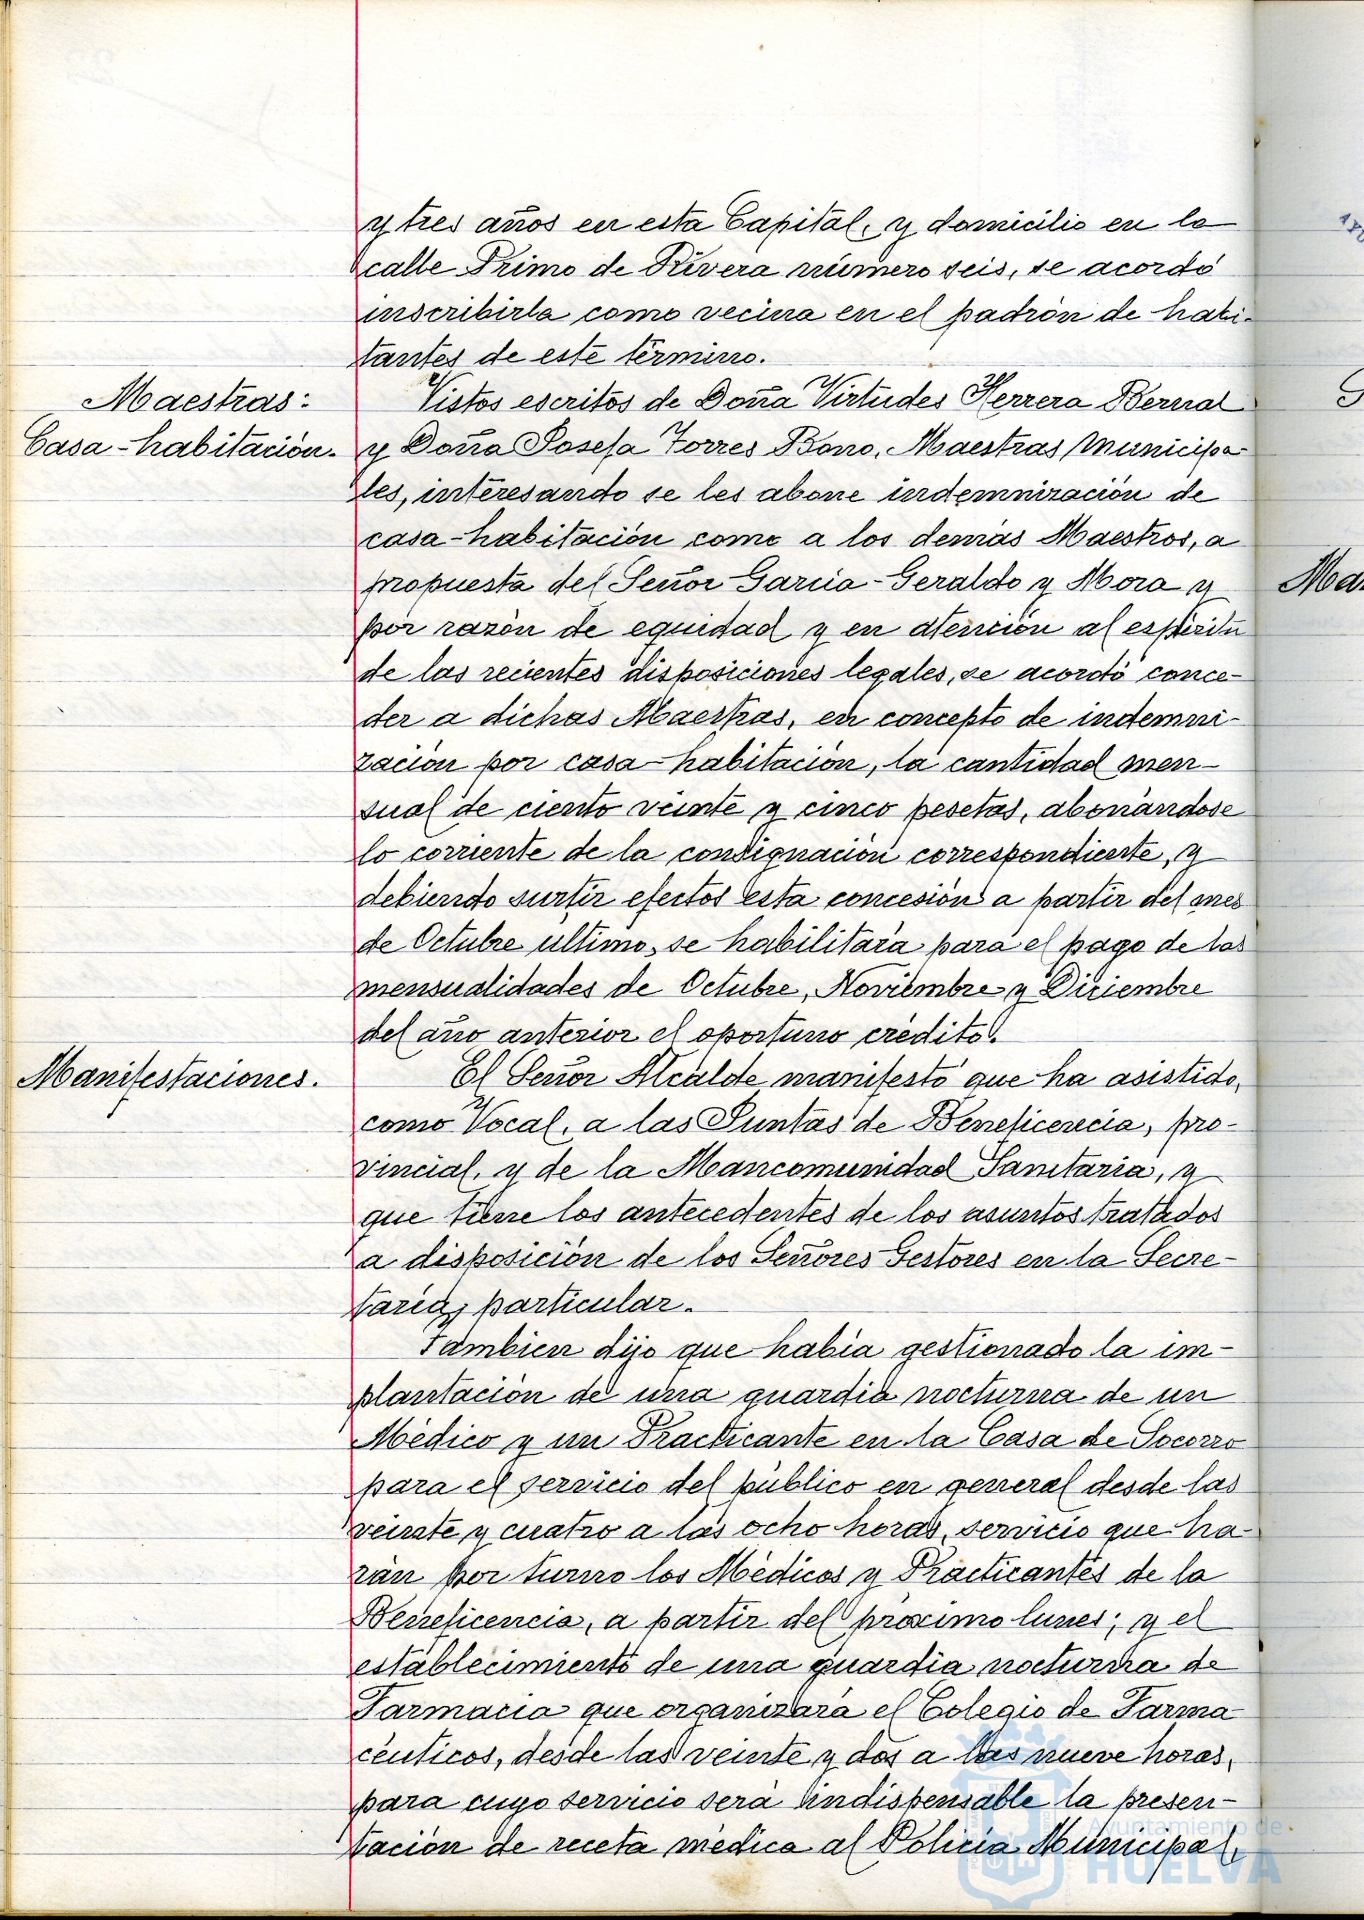 y tres años en esta Capital, y domicilio en la
calle Primo de Rivera número seis, se acordó
inscribirla como vecina en el padrón de habi-
tantes de este término.
Maestras:
Casa-habitación.
Vistos escritos de Doña Virtudes Herrera Bernal
y Doña Josefa Torres Bono, Maestras Municipa-
les, interesando se les abone indemnización de
casa-habitación como a los demás Maestros, a
propuesta del Señor García-Geraldo y Mora y
por razón de equidad y en atención al espíritu
de las recientes disposiciones legales, se acordó conce-
der a dichas Maestras, en concepto de indemni-
zación por casa-habitación, la cantidad men-
sual de ciento veinte y cinco pesetas, abonándose
lo corriente de la consignación correspondiente, y
debiendo surtir efectos esta concesión a partir del mes
de Octubre último, se habilitará para el pago de las
mensualidades de Octubre, Noviembre y Diciembre
del año anterior el oportuno crédito.
Manifestaciones.
El Señor Alcalde manifestó que ha asistido,
como Vocal, a las Juntas de Beneficencia, pro-
vincial, y de la Mancomunidad Sanitaria, y
que tiene los antecedentes de los asuntos tratados
a disposición de los Señores Gestores en la Secre-
taría particular.
Tambien dijo que había gestionado la im-
plantación de una guardia nocturna de un
Médico y un Practicante en la Casa de Socorro
para el servicio del público en general desde las
veinte y cuatro a las ocho horas, servicio que ha-
rán por turno los Médicos y Practicantes de la
Beneficencia, a partir del próximo lunes; y el
establecimiento de una guardia nocturna de
Farmacia que organizará el Colegio de Farma
céuticos, desde las veinte y dos a las nueve horas,
para cuyo servicio será indispensable la presen-
tación de receta médica al Policía Municipal,
Ayuntamiento de
HUELVA